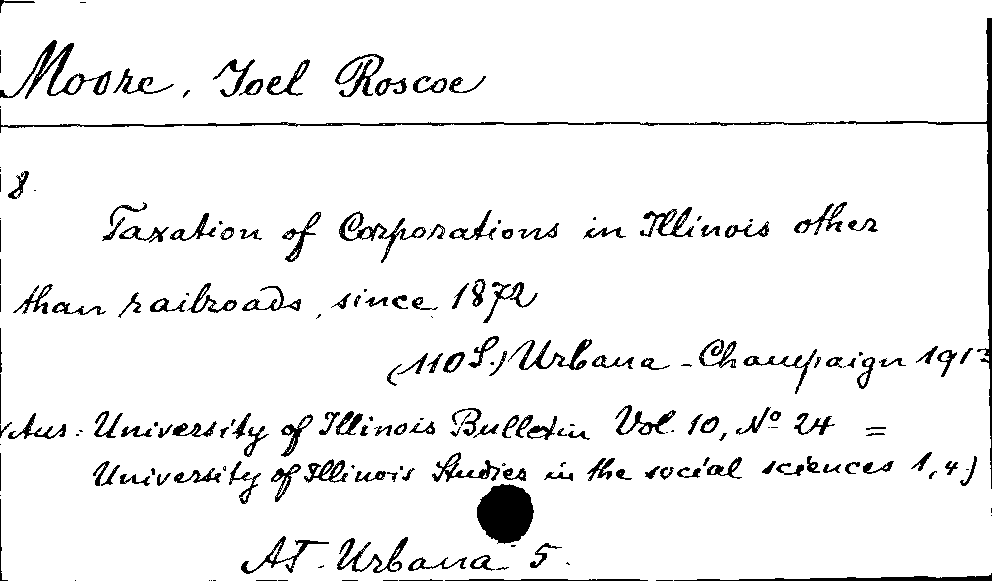 Moore, Joel Roscoe
8.
Taxation of Corporations in Illinois other
than railroads, since 1872
(110 S.) Urbana-Champaign 1913
(Aus: University of Illinois Bulletin Vol. 10, No 24 =
University of Illinois Studies in the social sciences 1,4)
AT-Urbana 5.